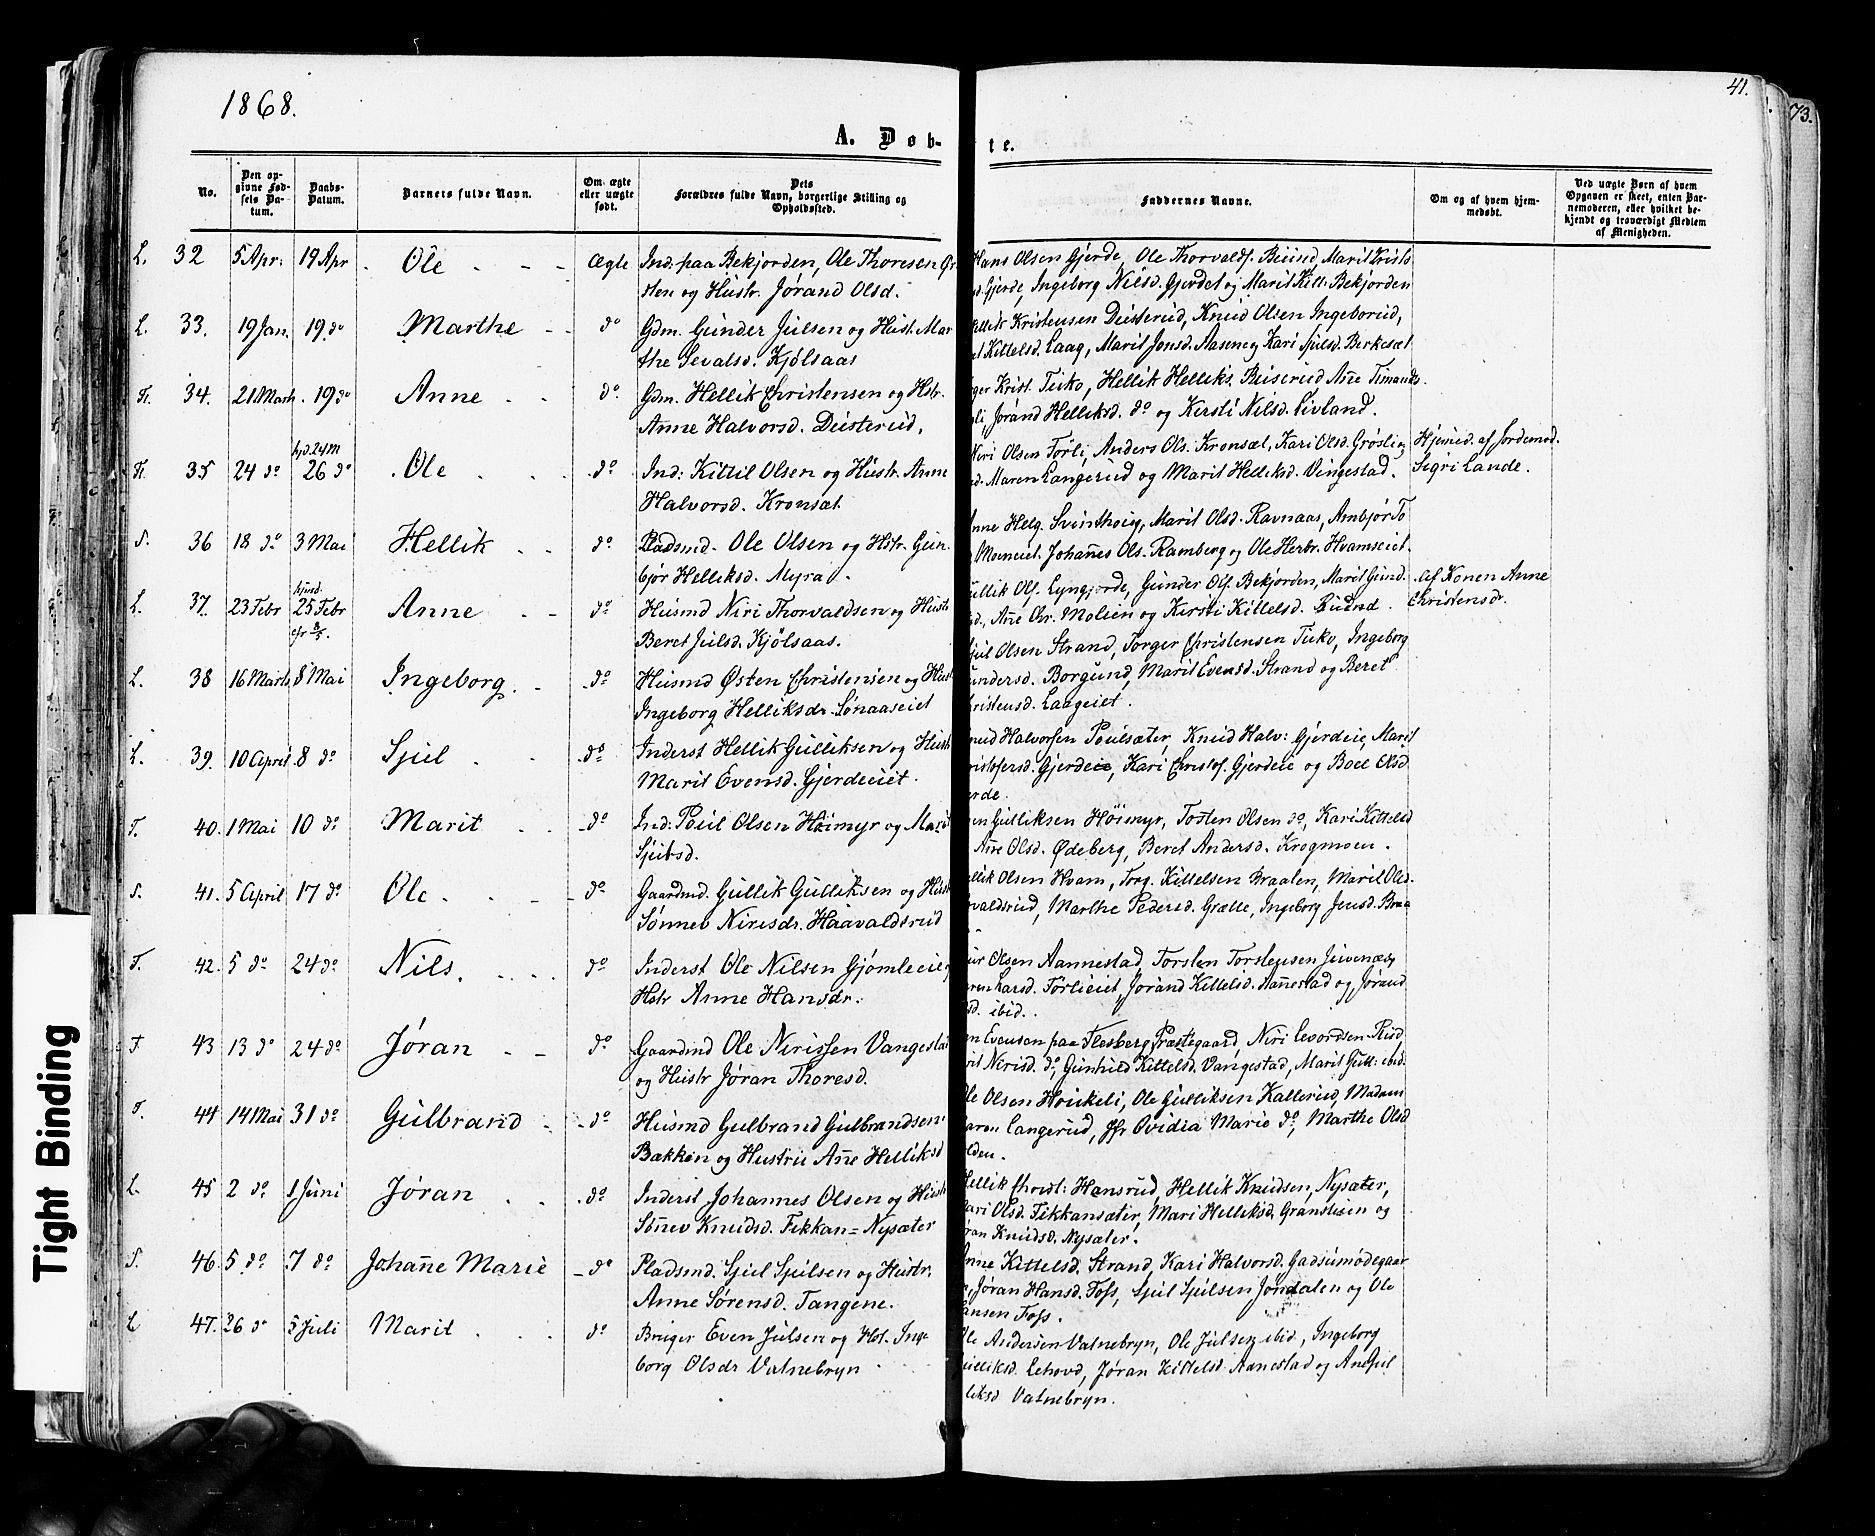 1868.
41.
73.
A. Døb-
te.
No.
Den op-
givne Fød-
sels Da-
tum.
Daabs-
Datum.
Barnets fulde Navn.
Om ægte
eller uægte
født.
Dets
Forældres fulde Navn, borgerlige Stilling og
Opholdssted.
Faddernes Navne.
Om og af hvem hjem-
medøbt.
Ved uægte Børn af hvem
Opgaven er skeet, enten Bar-
nemoderen, eller hvilket be-
kjendt og troværdigt Medlem
af Menigheden.
L. 32 5 Apr. 19 Apr Ole Ægte Ind. paa Bekjorden, Ole Thoresen
sten og Hustr. Jørand Olsd.
Hans Olsen Gjerde, Ole Thorvalds. Marit
Gjerde, Ingeborg Nilsd. Gjerdet og Marit Kitt. Bekjorden
L. 33. 19 Jan. 19 do Marthe do Gdm. Gunder Julsen og Hust. Mar
the Sevalsd. Kjølsaas
Kristensen Deisterud, Knud Olsen Ingeborud,
Kittelsd. Laag, Marit Jonsd. Aasen og Kari Sjulsd. Berkesæt
34. 21 Marts 19 do Anne do Gdm. Hellik Christensen og Hstr.
Anne Halvorsd. Deisterud.
Krist. Teiko, Hellik Helliks. Beiserud Añe
Jørand Helliksd. do og Kersti Nilsd. Livland.
35 24 do hjd. 24 M
26 do Ole do Ind: Kittil Olsen og Hustr. Anne
Halvorsd. Kronsæt
Niri Olsen Førli, Anders Ols. Kronsæt, Kari Olsd. Grøslie,
Maren Langerud og Marit Helliksd. Vingestad.
Hjemmed. af Jordemod.
Sigri Lande.
S. 36 18 do 3 Mai Hellik do Pladsmd. Ole Olsen og Hstr. Gun
bjør Helliksd. Myra.
Anne Helg. Svinthoug, Marit Olsd. Ravnaas, Ambjør To
Moeneiet, Johañes Ols. Ramberg og Ole Herbr. Hvamseiet.
L. 37. 23 Febr hjmd.
25 Febr
Anne do Husmd Niri Thorvaldsen og Hustr
Beret Julsd. Kjølsaas.
Ols. Lyngjorde, Gunder Ols. Bekjorden, Marit Gund.
Añe Chr. Moen og Kirsti Kittelsd. Ruud.
Af Konen Anne
Christensdr.
L. 38 16 Marts 8 Mai Ingeborg do Husmd Østen Christensen og Hust
Ingeborg Helliksdr. Sønaaseiet
Olsen Strand, Torger Christensen Teiko, Ingeborg
Gundersd. Borgund, Marit Evensd. Strand og Beret
Christensd. Laageiet.
L. 39. 10 April 8 do Sjul do Inderst Hellik Gulliksen og Hustr
Marit Evensd. Gjerdeeiet.
Halvorsen Poulsæter, Knud Halv: Gjerdeie, Marit
Gjerdeie, Kari Christof. Gjerdeie og Boel Olsd.
T. 40. 1 Mai 10 do Marit do Ind: Poul Olsen Høimyr og Marit
Sjulsd.
Gulliksen Høimyr, Tosten Olsen do, Kari Kittelsd
Añe Olsd. Ødeberg, Beret Andersd. Krogmoen.
S. 41. 5 April 17 do Ole do Gaardmd. Gullik Gulliksen og Hust
Sønnev Nirisdr. Haavaldsrud
Olsen Hvam, Torg. Kittelsen Braaten, Marit Olsd.
Marthe Pedersd. Grette, Ingeborg Jensd. Braa
T. 42. 5 do 24 do Nils. do Inderst Ole Nilsen Gjømleeie og
Hstr Anne Hansdr.
Olsen Aannestad, Torsten Torstensen Juvenæs,
Larsd. Førlieiet, Jørand Kittelsd. Aañestad og Jørand
ibid.
T 43 13 do 24 do Jøran do Gaardmd Ole Nirissen Vangestad
og Hustr Jøran Thoresd.
Evensen paa Flesberg Præstegaard, Niri Levordsen Ruud,
Nirisd. do, Gunhild Kittelsd. Vangestad, Marit Gull: ibid.
T. 44 14 Mai 31 do Gulbrand do Husmd Gulbrand Gulbrandsen
Bækken og Hustru Añe Helliksd
Ole Olsen Houkeli, Ole Gulliksen Kallerud, Madam
Maren Langerud, Jfr Ovidia Marie do, Marthe Olsd
L. 45 2 do 1 Juni Jøran do Inderst Johannes Olsen og Hust
Søñev Knudsd. Fekkan=Nysæter
Hellik Hansrud, Hellik Knudsen, Nysæter,
Kari Olsd. Fekkansæter, Mari Helliksd. Granstuen og
Jøran Knudsd. Nysæter.
S. 46. 5 do 7 do Johañe Marie do Pladsmd. Sjul Sjulsen og Hustr.
Anne Sørensd. Tangene.
Anne Kittelsd. Strand, Kari Halvorsd. Gadsumodegaar
Jøran Hansd. Foss, Sjul Sjulsen Jondalen og Ole
Hansen Foss.
L 47. 26 do 5 Juli Marit do Bruger Even Julsen og Hst. Inge
borg Olsdr Vatnebryn
Ole Andersen Vatnebryn, Ole Julsen ibid, Ingeborg
Gulliksd. Lehovd, Jøran Kittelsd. Aanestad og
Vatnebryn.
Tight Binding